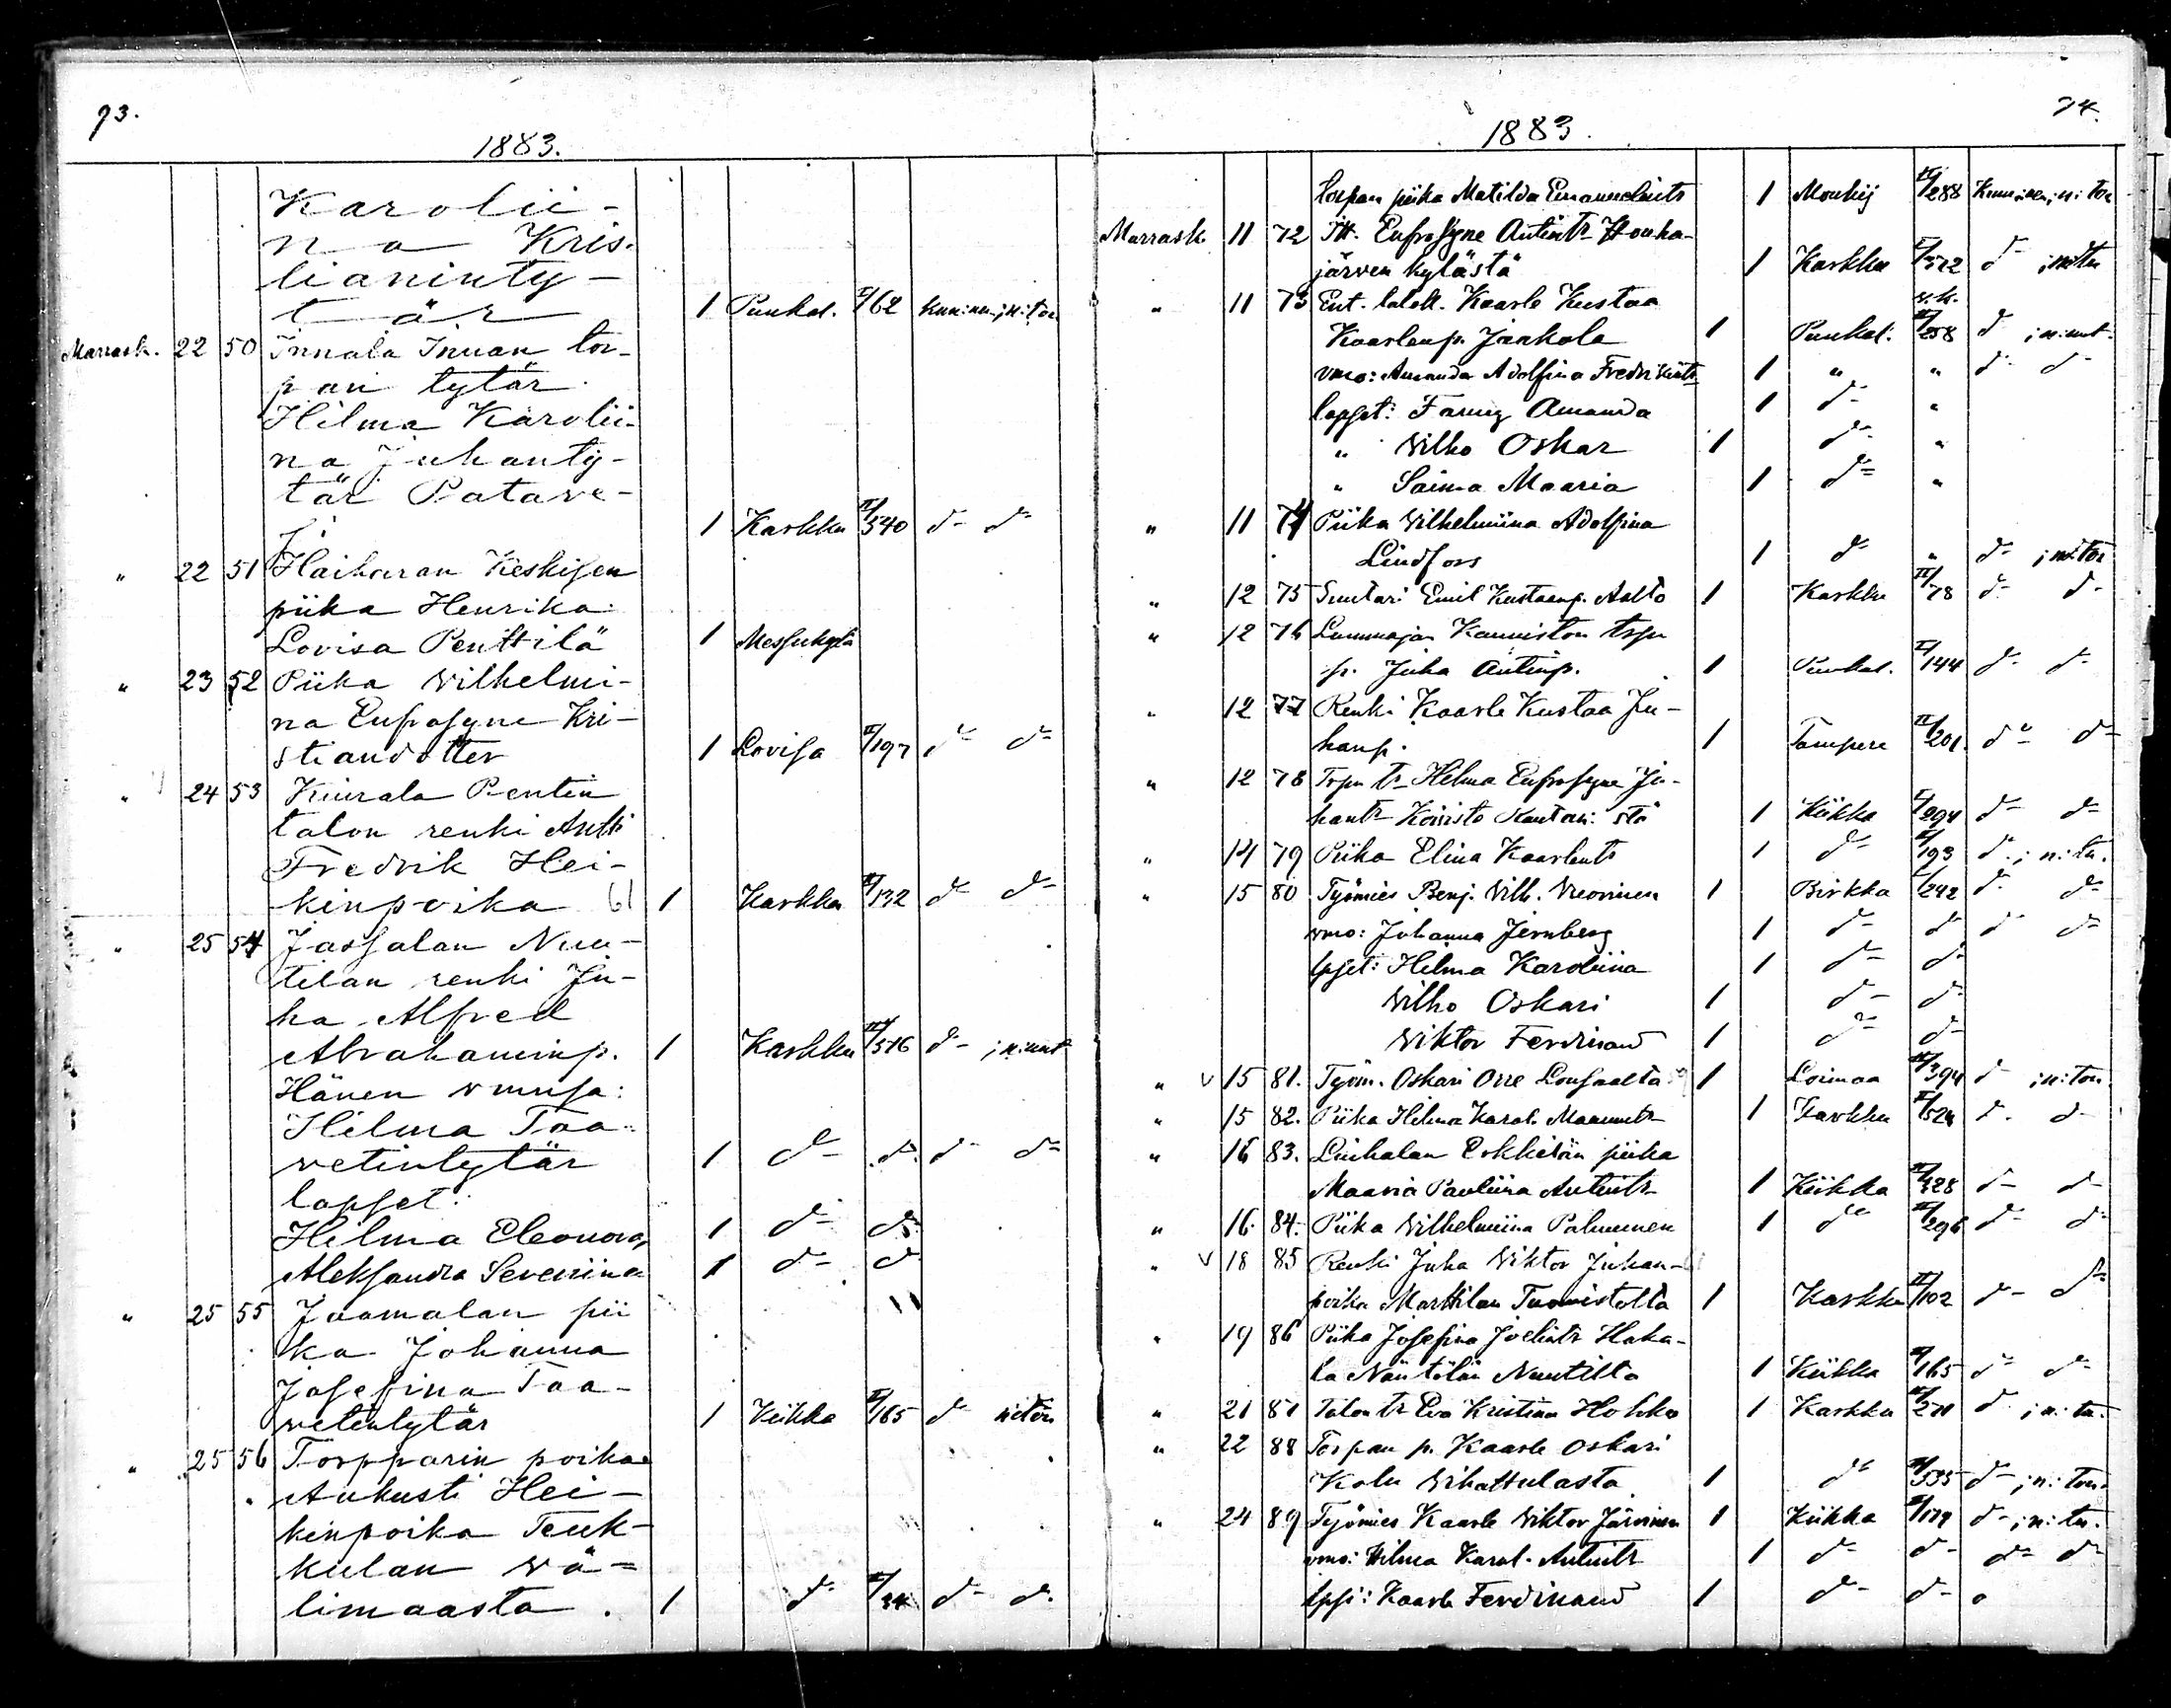 73.
1883.
Karolii-
na Kris-
tianinty-
tär 1 Punkal. I/62 kunnian; n: ton
Marrask. 22 50 Innala Innan tor-
pan tytär
Hilma Karolii-
na Juhanty-
tär Patave-
1 Karkku II/540 d- d-
" 22 51 Haiharan Keskisen
piika Henrika
Lovisa Penttilä 1 Messukylä
" 23 52 Piika Vilhelmi-
na Eufrosyne Kri-
stiandotter 1 Lovisa II/197 d- d-
" 24 53 Kiurala Pentin
talon renki Antti
Fredrik Hei-
kinpoika 61 1 Karkku II/132 d- d-
" 25 54 Jassalan Nuu-
tilan renki Ju-
ha Alfred
Abrahaminp. 1 Karkku II/516 d- ; n: nut
Hänen vmunsa:
Hilma Taa-
vetintytär 1 d- d. d- d-
lapset:
Helma Eleonora, 1 d- d-
Aleksandra Severiina 1 d- d-
" 25 55 Jaamalan pii
ka Johanna
Josefina Taa-
vetintytär 1 Kiikka II/165 d- n:ton
" 25 56 Torpparin poika
Aukusti Hei-
kinpoika Teuk-
kulan Vä-
limaasta. 1 d- d- d.
74.
1883.
Torpan piika Matilda Emanuelints 1 Mouhij. II/288 Kunnian; n: ton
Marrask. 11 72 Itt. Eufrosyne Antintr Houha-
järven kylästä 1 Karkku I/512 d- ; n:tu
" 11 73 Ent. taloll. Kaarle Kustaa
Kaarlenp. Jaakola 1 Punkal. II/258 d ; n: nut.
vmo: Amanda Adolfina Fredrikints 1 " " d- d-
lapset: Fanny Amanda 1 d- "
" Vilho Oskar 1 d- "
" Saima Maaria 1 d- "
" 11 74 Piika Vilhelmiina Adolfina
Lindfors 1 d- " d- ; n:ton
" 12 75 Suutari Emil Kustaanp. Aalto 1 Karkku II/78 d- d-
" 12 76 Lammajan Kanniston torpn
p. Juha Antinp. 1 Punkal. II/144 d- d-
" 12 77 Renki Kaarle Kustaa Ju-
hanp. 1 Tampere II/201. d- d-
" 12 78 Torpn tr Helma Eufrosyne Ju-
hantr Koivisto Kantari: stä 1 Kiikka I/294 d- d-
" 14 79 Piika Elina Kaarlents 1 d- II/193 d. ; n: tu.
" 15 80 Työmies Benj. Vilh. Vuorinen 1 Birkka I/242 d- d-
vmo: Johanna Jernberg 1 d- d d d-
lpset: Helma Karoliina 1 d- d-
Vilho Oskari 1 d- d-
Viktor Ferdinand 1 d- d-
" v 15 81. Työm. Oskari Orre Lousaalta 1 Loimaa II/394 d- ; n: ton
" 15 82. Piika Helma Karol. Manuntr 1 Karkku II/524 d. d-
" 16 83. Liuhalan Erkkilän piika
Maaria Pauliina Antintr 1 Kiikka II/328 d- d-
" 16. 84. Piika Vilhelmiina Palmunen 1 d- II/296 d- d-
" v 18 85 Renki Juha Viktor Juhan-
poika Marttilan Tuomistolta 1 Karkku II/102 d- d-
" 19 86 Piika Josefina Joelintr Haka-
la Näntölän Nuutilta 1 Kiikka II/165 d- d-
" 21 87 Talon tr Eva Kristina Hohko 1 Karkku II/271 d ; n: tu.
" 22 88 Torpan p. Kaarle Oskari
Kolu Vihattulasta 1 d- II/535 d- ; n: ton.
" 24 89 Työmies Kaarle Viktor Järvinen 1 Kiikka II/179 d- ; n: tu.
vmo: Hilma Karol. Antintr 1 d- d- d- d-
lpsi: Kaarle Ferdinand 1 d- d-